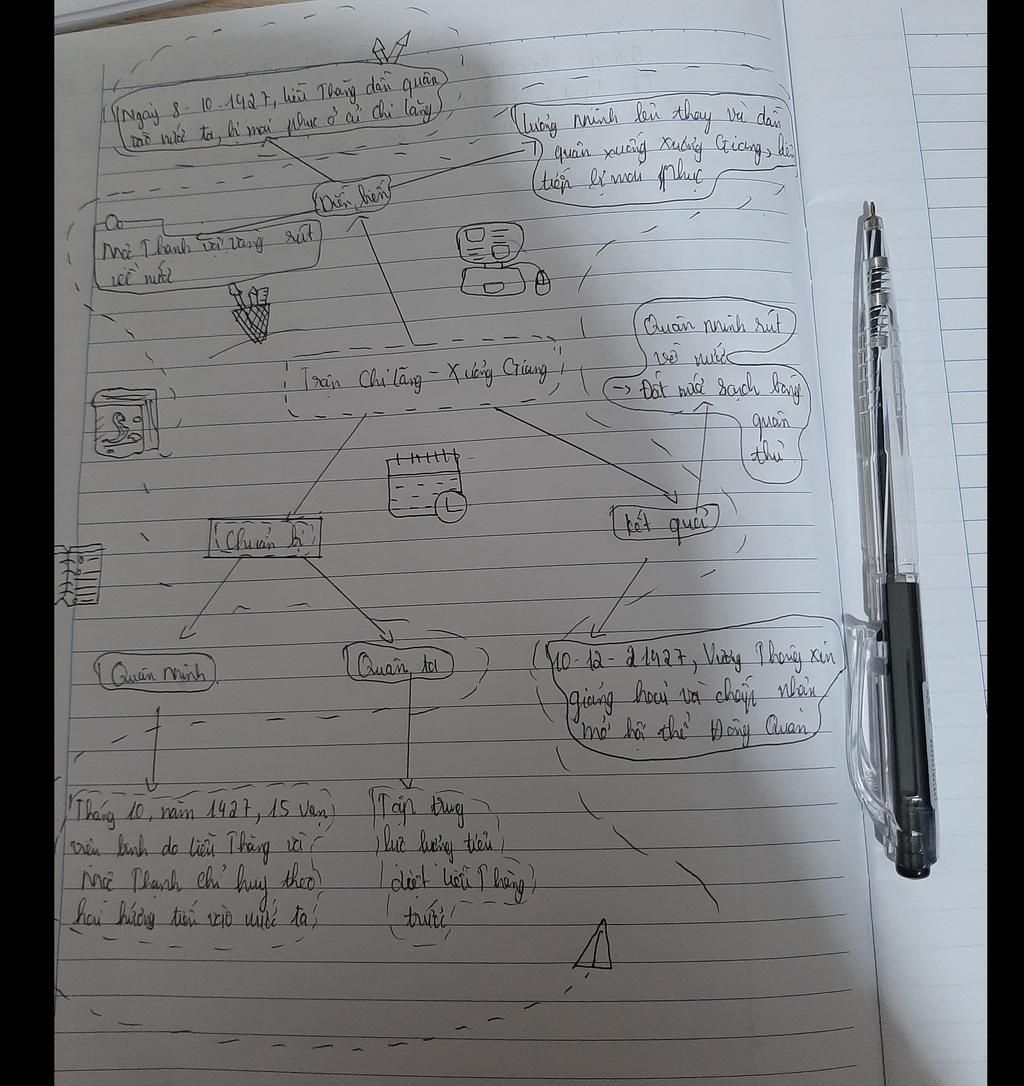 Ngày 8-10-1927, Liễu Thăng dẫn quân
vào nước ta, bị mai phục ở ải Chi Lăng
Lương Minh lên thay và dẫn
quân xuống Xương Giang, liên
tiếp bị mai phục
Diễn biến
Mộc Thạnh vội vàng rút
về nước
Quân Minh rút
về nước
→ Đất nước sạch bóng
quân
thù
Trận Chi Lăng - Xương Giang
Chuẩn bị
Kết quả
Quân Minh
Quân ta
10-12-21927, Vương Thông xin
giảng hoà và chấp nhận
mở hội thề Đông Quan
Tháng 10, năm 1927, 15 vạn
viện binh do Liễu Thăng và
Mộc Thạnh chỉ huy theo
hai hướng tiến vào nước ta
Tập trung
lực lượng tiêu
diệt Liễu Thăng
trước